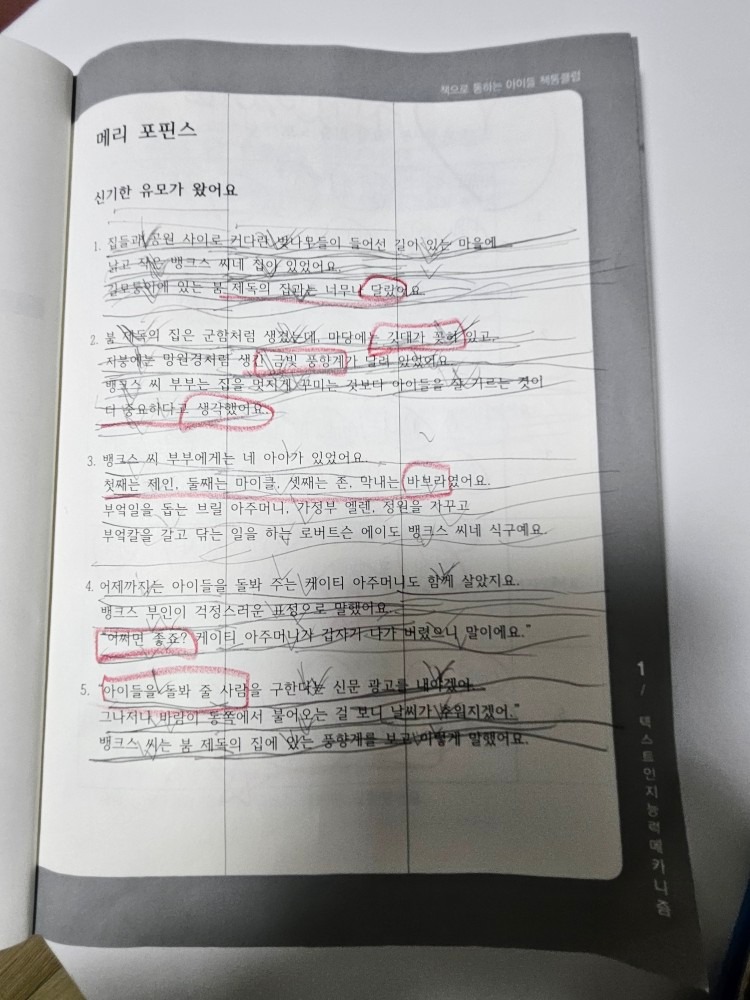 책으로 통하는 아이들 책통클럽
메리 포핀스
신기한 유모가 왔어요
1. 집들과 공원 사이로 커다란 벚나무들이 들어선 길이 있는 마을에
낡고 작은 뱅크스 씨네 집이 있었어요.
길모퉁이에 있는 붐 제독의 집과는 너무나 달랐어요.
2. 붐 제독의 집은 군함처럼 생겼는데, 마당에는 깃대가 꽂혀 있고,
지붕에는 망원경처럼 생긴 금빛 풍향계가 달려 있었어요.
뱅크스 씨 부부는 집을 멋지게 꾸미는 것보다 아이들을 잘 기르는 것이
더 중요하다고 생각했어요.
3. 뱅크스 씨 부부에게는 네 아이가 있었어요.
첫째는 제인, 둘째는 마이클, 셋째는 존, 막내는 바보라였어요.
부엌일을 돕는 브릴 아주머니, 가정부 엘렌, 정원을 가꾸고
부엌칼을 갈고 닦는 일을 하는 로버트슨 에이도 뱅크스 씨네 식구예요.
4. 어제까지는 아이들을 돌봐 주는 케이티 아주머니도 함께 살았지요.
뱅크스 부인이 걱정스러운 표정으로 말했어요.
"어쩌면 좋죠? 케이티 아주머니가 갑자기 나가 버렸으니 말이에요."
5. "아이들을 돌봐 줄 사람을 구한다는 신문 광고를 내야겠어.
그나저나 바람이 동쪽에서 불어오는 걸 보니 날씨가 추워지겠어."
뱅크스 씨는 붐 제독의 집에 있는 풍향계를 보고 이렇게 말했어요.
1 / 텍스트인지능력메카니즘